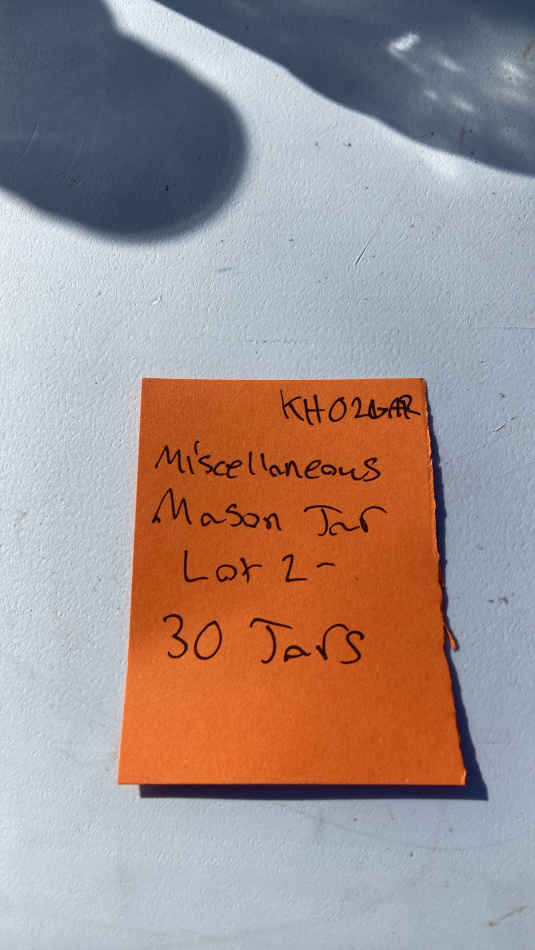 KH02GAR
Miscellaneous
Mason Jar
Lot 2-
30 Jars